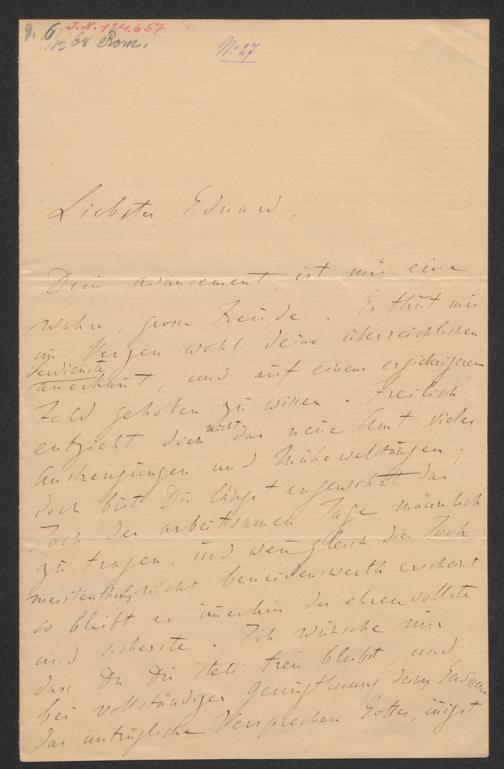 J. N. 124.657
6/12 68 Rom.
No 27.
Liebster Eduard,
Dein avancement ist mir eine
wahre, grosse Freude. Es thut mir
im Herzen wohl deine überreichlichen
Verdienste
anerkannt, und auf einem ergiebigeren
Feld gehoben zu wissen. Freilich
entzieht dich nicht das neue Amt vieler
Anstrengungen und Mühewaltungen;
doch bist Du längst angewohnt das
Joch der arbeitsamen Tage männlich
zu tragen, und wenn gleich dies Joch
meistentheils nicht beneidenswerth erscheint
so bleibt es immerhin das ehrenvollste
und sicherste. Ich wünsche nur
dass Du Dir stets treu bleibst, und
bei vollständiger Genugthuung deines Gewissens
das untrügliche Versprechen Gottes, innigst